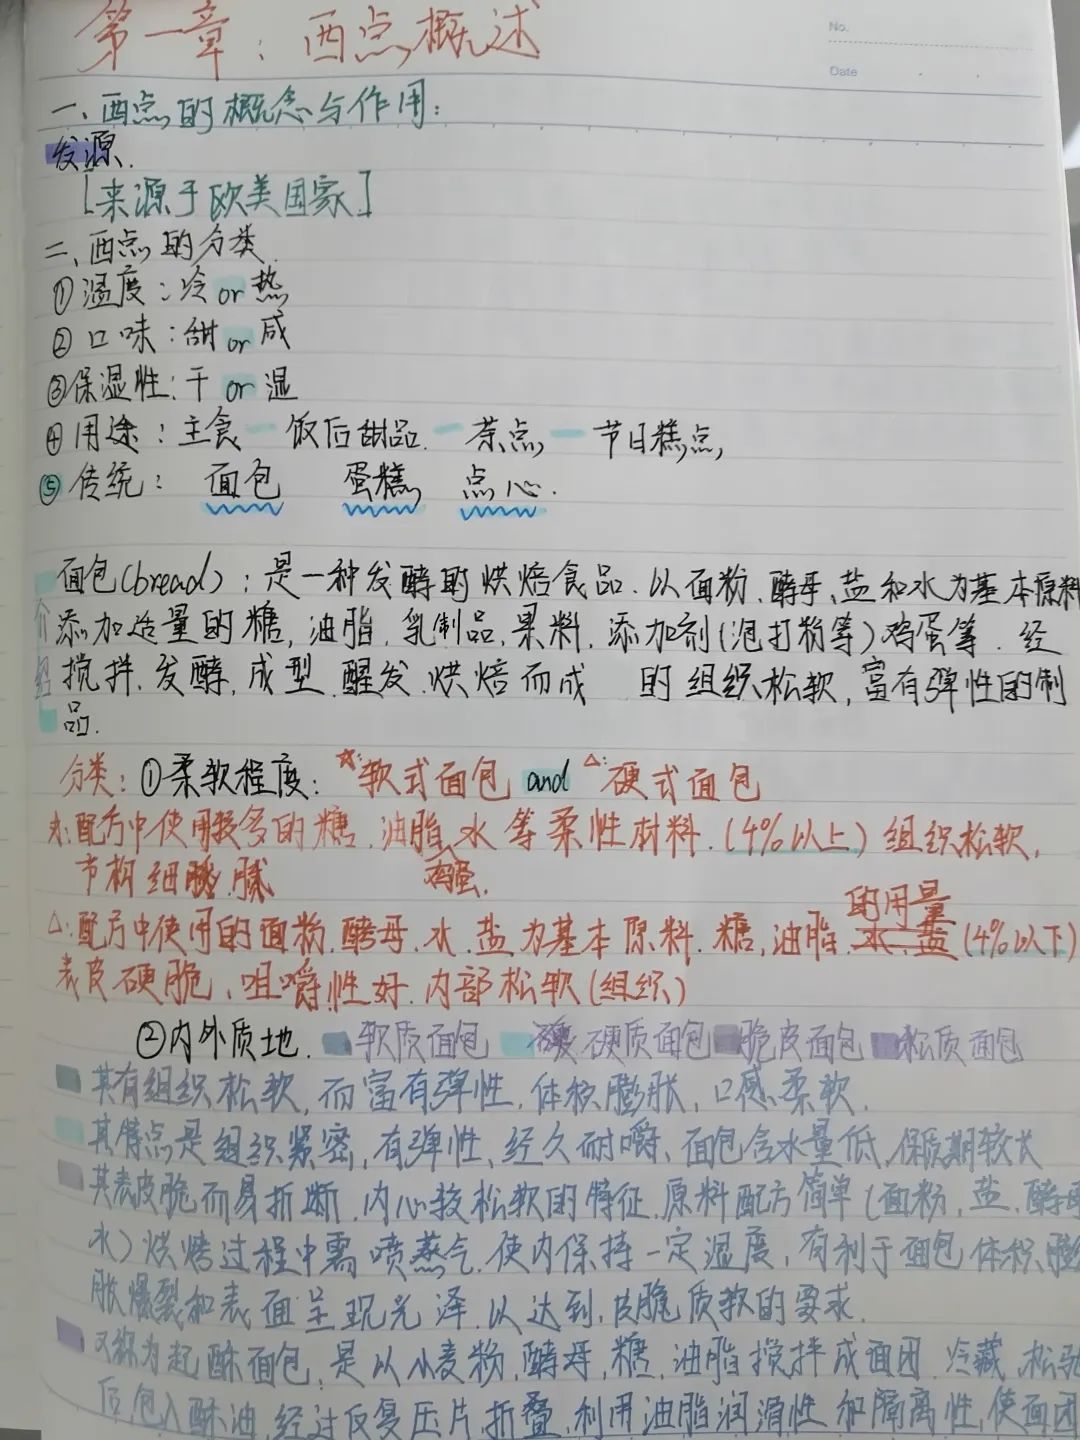 第一章：西点概述
No.
Date
一、西点的概念与作用：
发源.
[来源于欧美国家]
二、西点的分类
①温度：冷 or 热
②口味：甜 or 咸
③保湿性：干 or 湿
④用途：主食 — 饭后甜品. — 茶点 — 节日糕点,
⑤传统： 面包 蛋糕 点心.
面包(bread)：是一种发酵的烘焙食品.以面粉.酵母、盐和水为基本原料
介 添加适量的糖,油脂.乳制品,果料.添加剂(泡打粉等)鸡蛋等.经
绍 搅拌.发酵,成型.醒发.烘焙而成 的组织松软,富有弹性的制
品.
分类：①柔软程度：☆:软式面包 and △:硬式面包
☆:配方中使用较多的糖.油脂、水等柔性材料.(4%以上)组织松软,
节构细 腻 鸡蛋.
的用量
△:配方中使用的面粉.酵母.水.盐为基本原料.糖,油脂.水、盐(4%以下)
表皮硬脆、咀嚼性好.内部松软(组织)
②内外质地. 软质面包 硬质面包 脆皮面包 松质面包
其有组织松软,而富有弹性,体积膨胀,口感柔软.
其特点是组织紧密,有弹性、经久耐嚼、面包含水量低,保质期较长
其表皮脆而易折断.内心较松软的特征.原料配方简单(面粉,盐.酵母
水)烘烤过程中需喷蒸气.使内保持一定湿度,有利于面包体积膨
胀爆裂和表面呈现光泽.以达到,皮脆质软的要求.
又称为起酥面包,是以小麦粉,酵母,糖、油脂搅拌成面团.冷藏,松弛
后包入酥油,经过反复压片.折叠,利用油脂润滑性和隔离性,使面团